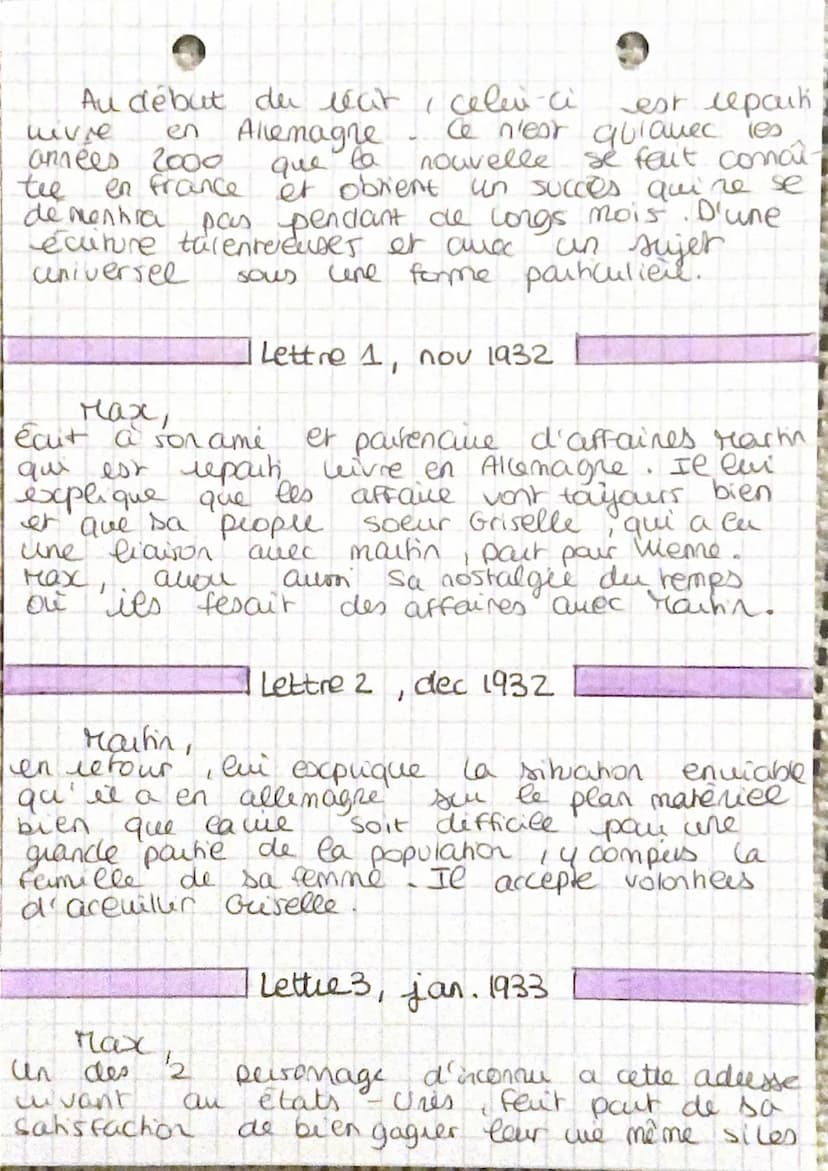 Au début du récit, celui-ci est reparti
vivre en Allemagne. Ce n'est qu'avec les
années 2000 que la nouvelle se fait connaî-
tre en france et obtient un succès qui ne se
démentira pas pendant de longs mois. D'une
écriture talentueuses et avec un sujet
universel sous une forme particulière.
Lettre 1, nov 1932
Max,
écrit à son ami et partenaire d'affaires Martin
qui est reparti vivre en Allemagne. Il lui
explique que les affaire vont toujours bien
et que sa propre soeur Griselle, qui a eu
une liaison avec martin, part pour Vienne.
Max, avou aussi sa nostalgie du temps
où ils fesait des affaires avec Martin.
Lettre 2, dec 1932
Martin,
en retour, lui explique la situation enviable
qu'il a en allemagne sur le plan matériel
bien que la vie soit difficile pour une
grande partie de la population, y compris la
famille de sa femme. Il accepte volontiers
d'aceuillir Griselle.
Lettre 3, jan. 1933
Max,
un des 2 personnage d'inconnu a cette adresse
vivant au états-Unis, fait part de sa
satisfaction de bien gagner leur vie même si les